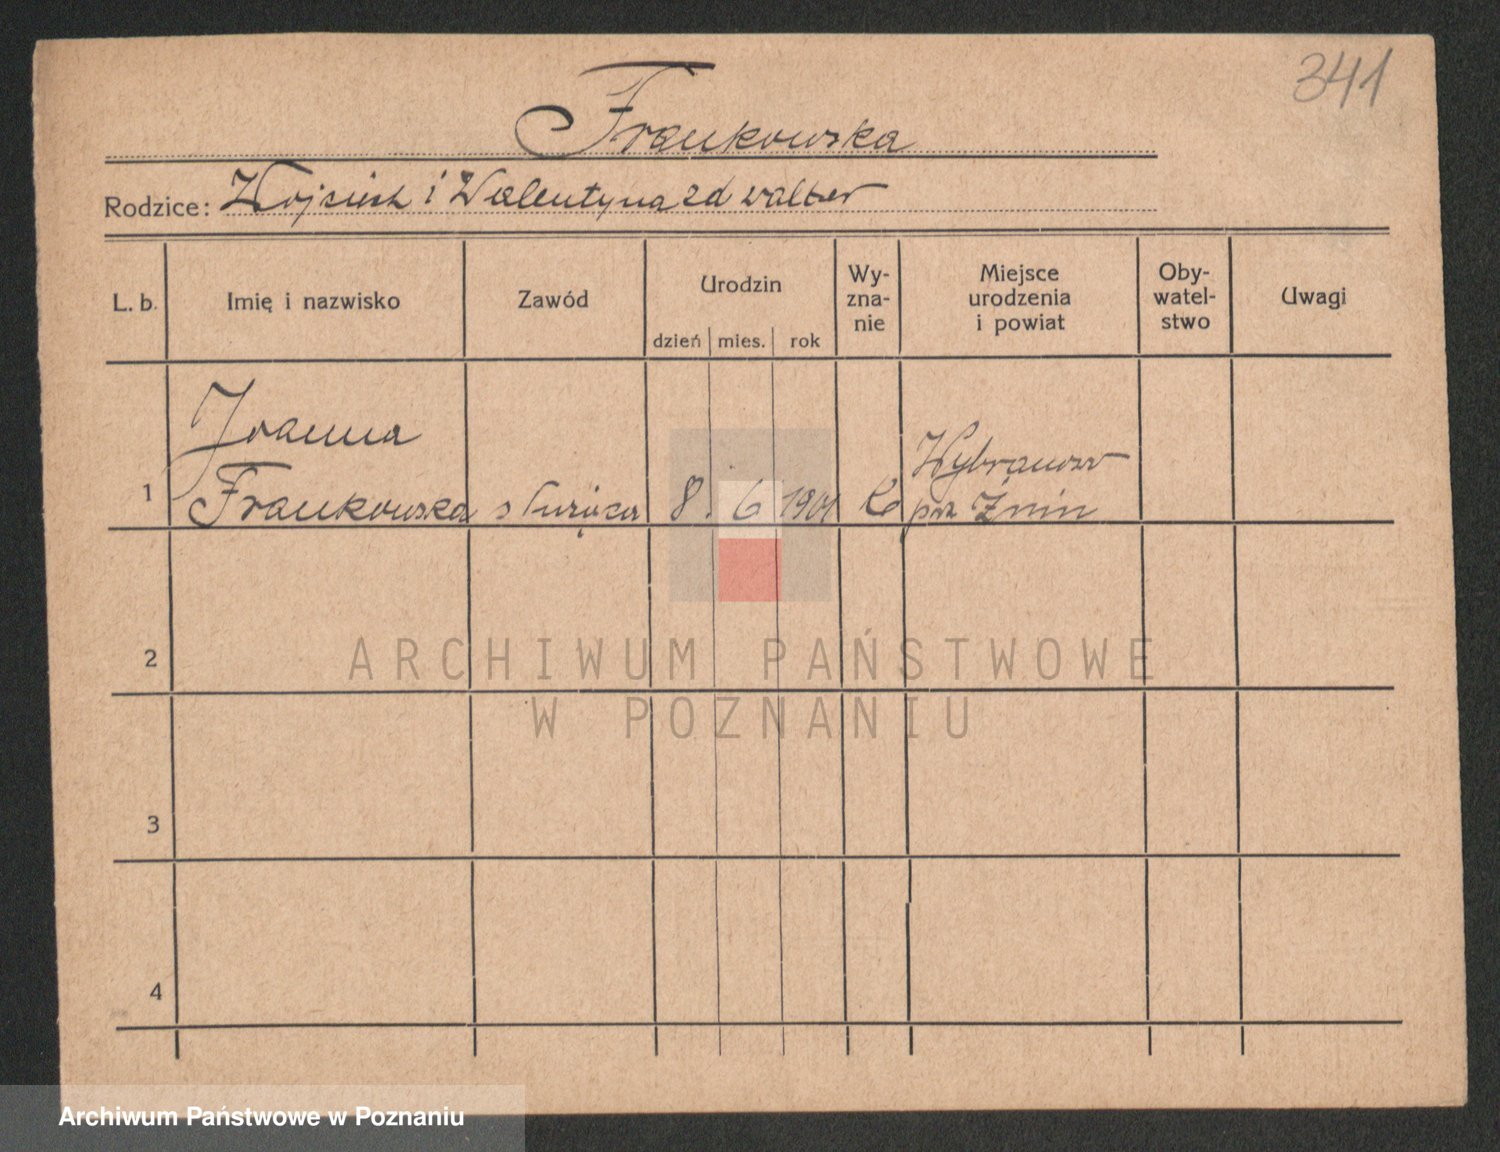 341
Frankowska
Rodzice: Wojciech i Walentyna zd Walter
L. b. Imię i nazwisko Zawód Urodzin Wy-zna-nie Miejsce urodzenia i powiat Oby-watel-stwo Uwagi
dzień mies. rok
Joanna
1 Frankowska służąca 8. 6 1901 Wybranowo
pow Żnin
2
3
4
ARCHIWUM PAŃSTWOWE
W POZNANIU
Archiwum Państwowe w Poznaniu